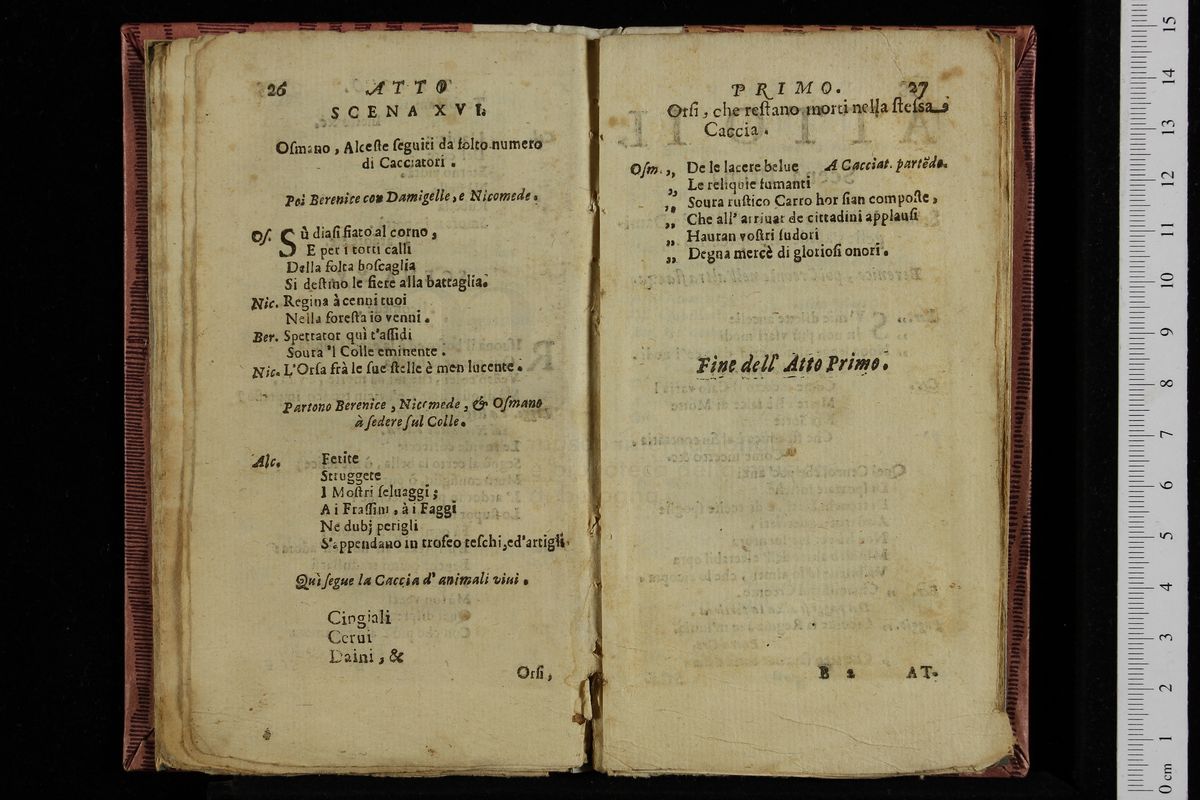 26 ATTO
SCENA XVI.
Oſmano, Alceſte ſeguiti da folto numero
di Cacciatori.
Poi Berenice con Damigelle, e Nicomede.
Oſ. Sù diaſi fiato al corno,
E per i torti calli
Della folta boſcaglia
Si deſtino le fiere alla battaglia.
Nic. Regina à cenni tuoi
Nella foreſta io venni.
Ber. Spettator quì t'aſſidi
Soura 'l Colle eminente.
Nic. L'Orſa frà le ſue ſtelle è men lucente.
Partono Berenice, Nicomede, & Oſmano
à ſedere ſul Colle.
Alc. Ferite
Struggete
I Moſtri ſeluaggi;
A i Fraſſini, à i Faggi
Ne dubj perigli
S'appendano in trofeo teſchi, ed'artigli.
Quì ſegue la Caccia d'animali viui.
Cingiali
Cerui
Daini, &
Orſi,
PRIMO. 27
Orſi, che reſtano morti nella ſteſſa
Caccia.
Oſm. ,, De le lacere belue A Cacciat. partẽdo.
,, Le reliquie fumanti
,, Soura ruſtico Carro hor ſian compoſte,
,, Che all' arriuar de cittadini applauſi
,, Hauran voſtri ſudori
,, Degna mercè di glorioſi onori.
Fine dell' Atto Primo.
B 2 AT-
15
14
13
12
11
10
9
8
7
6
5
4
3
2
1
0 cm